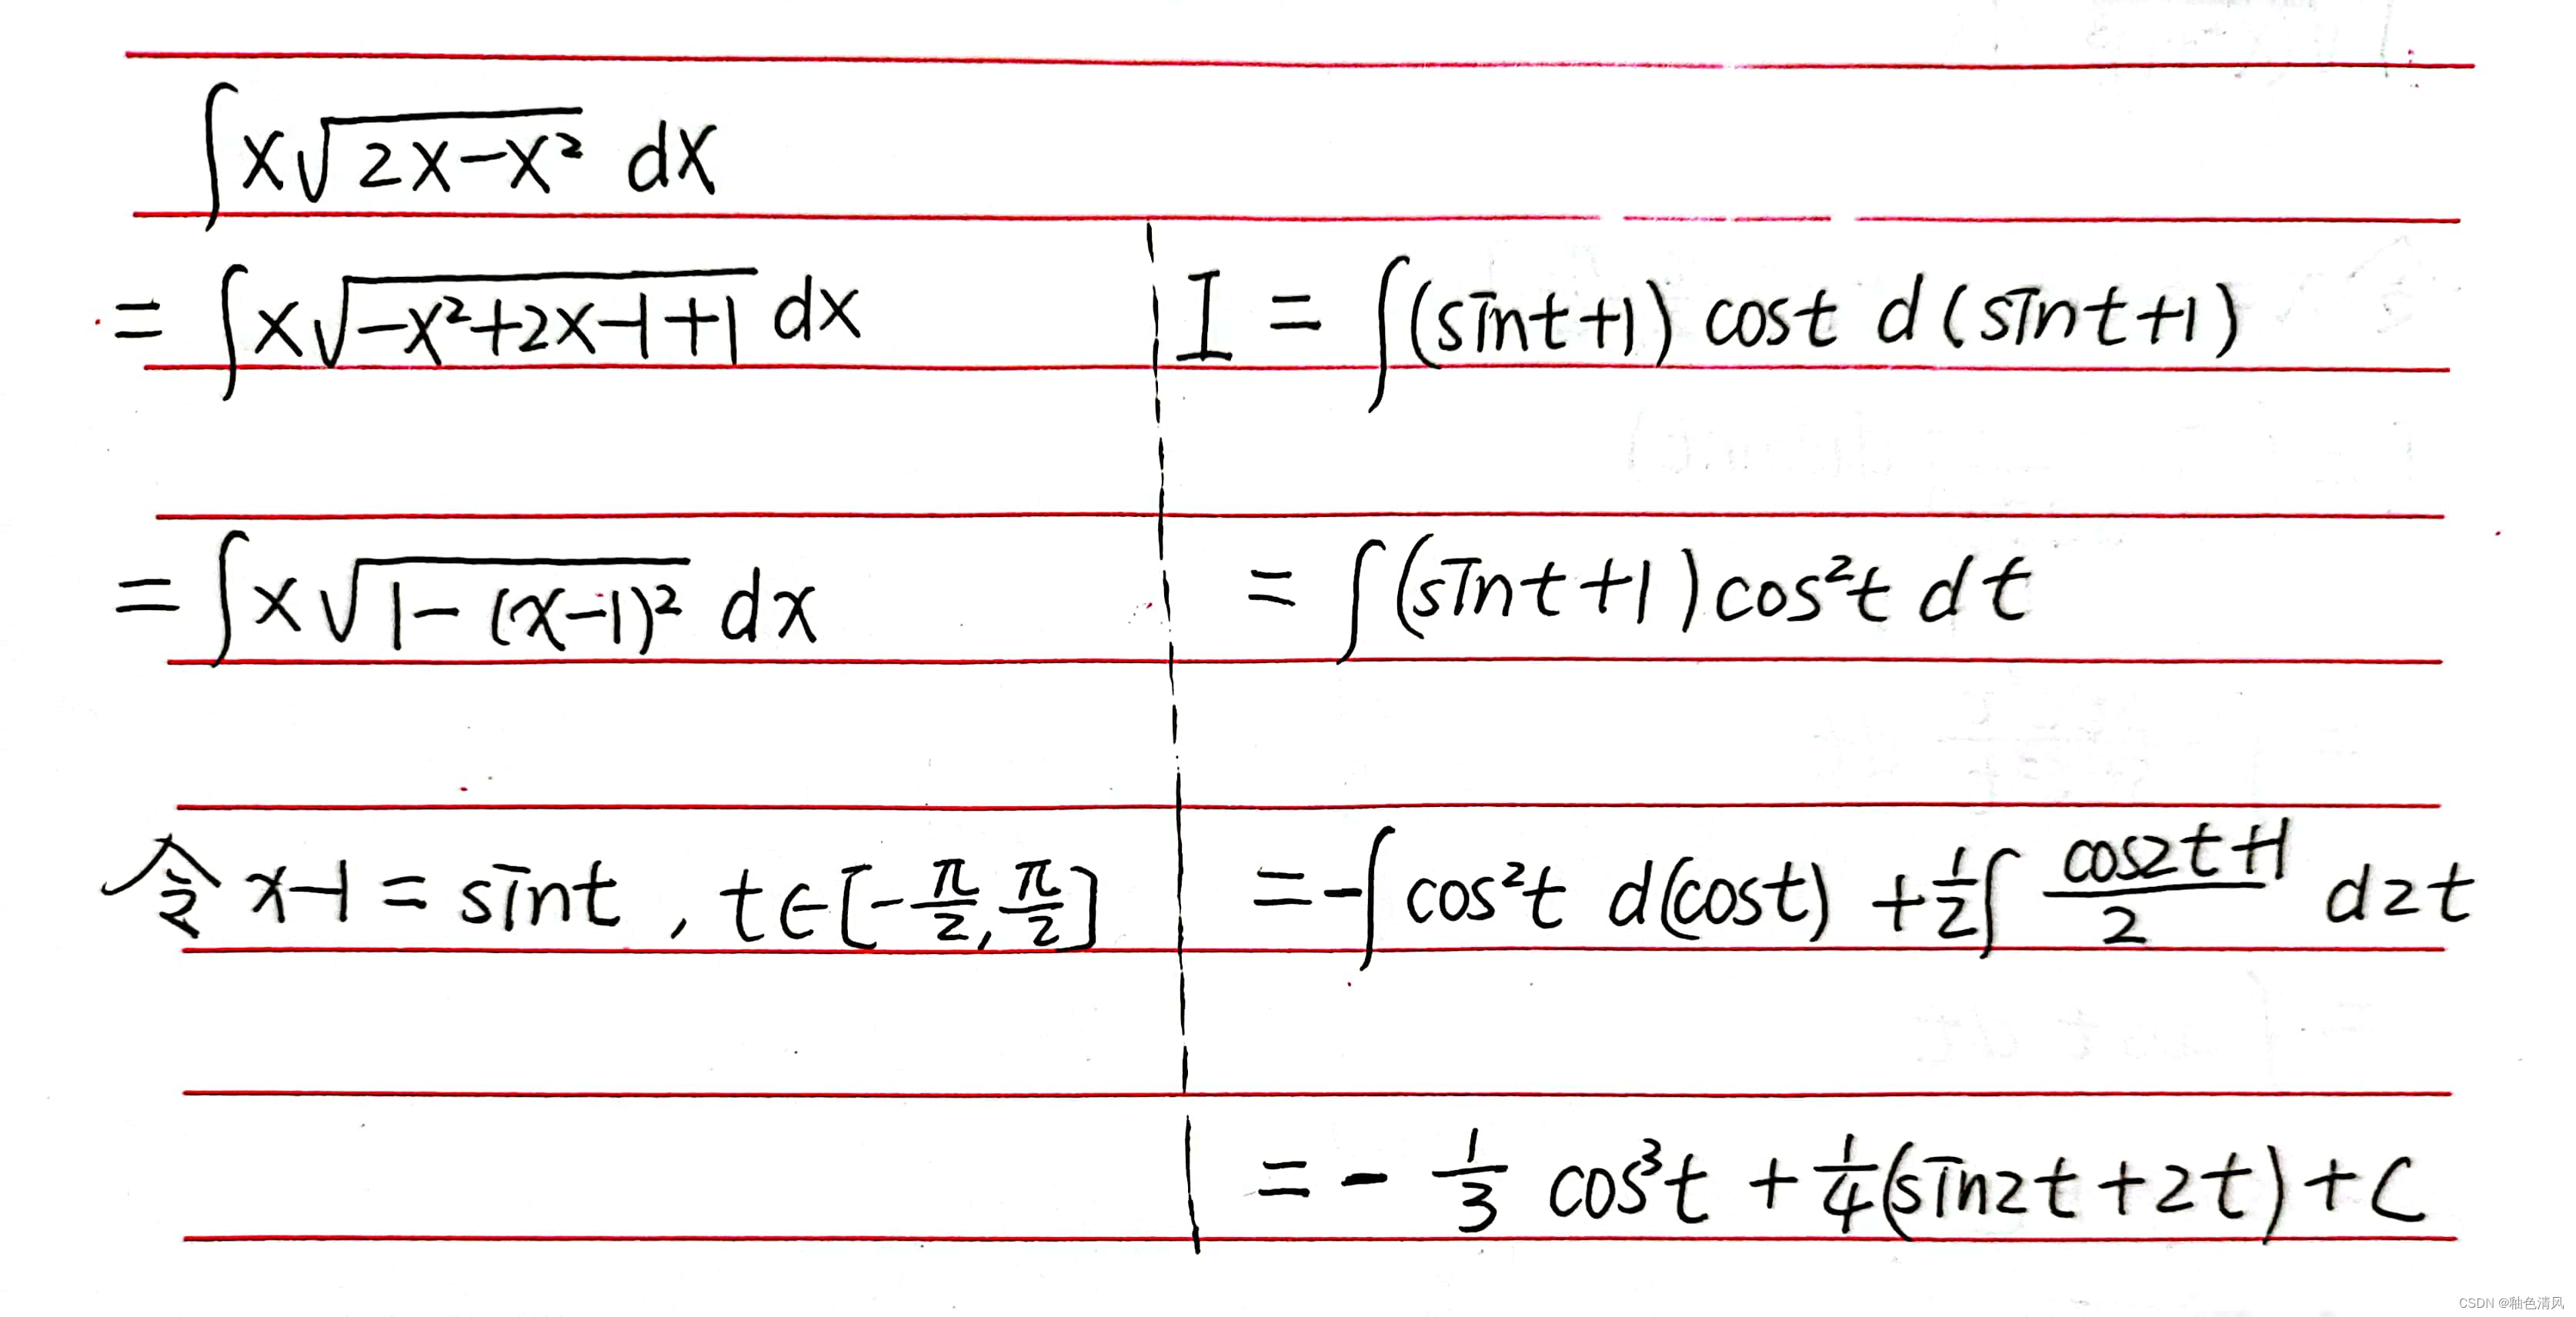 ∫x√(2x-x²) dx
= ∫x√(-x²+2x-1+1) dx
= ∫x√(1-(x-1)²) dx
令 x-1 = sint , t∈[-π/2, π/2]
I = ∫(sint+1) cost d(sint+1)
= ∫(sint+1)cos²t dt
= -∫cos²t d(cost) + 1/2∫ (cos2t+1)/2 d2t
= - 1/3 cos³t + 1/4(sin2t+2t)+C
CSDN @釉色清风